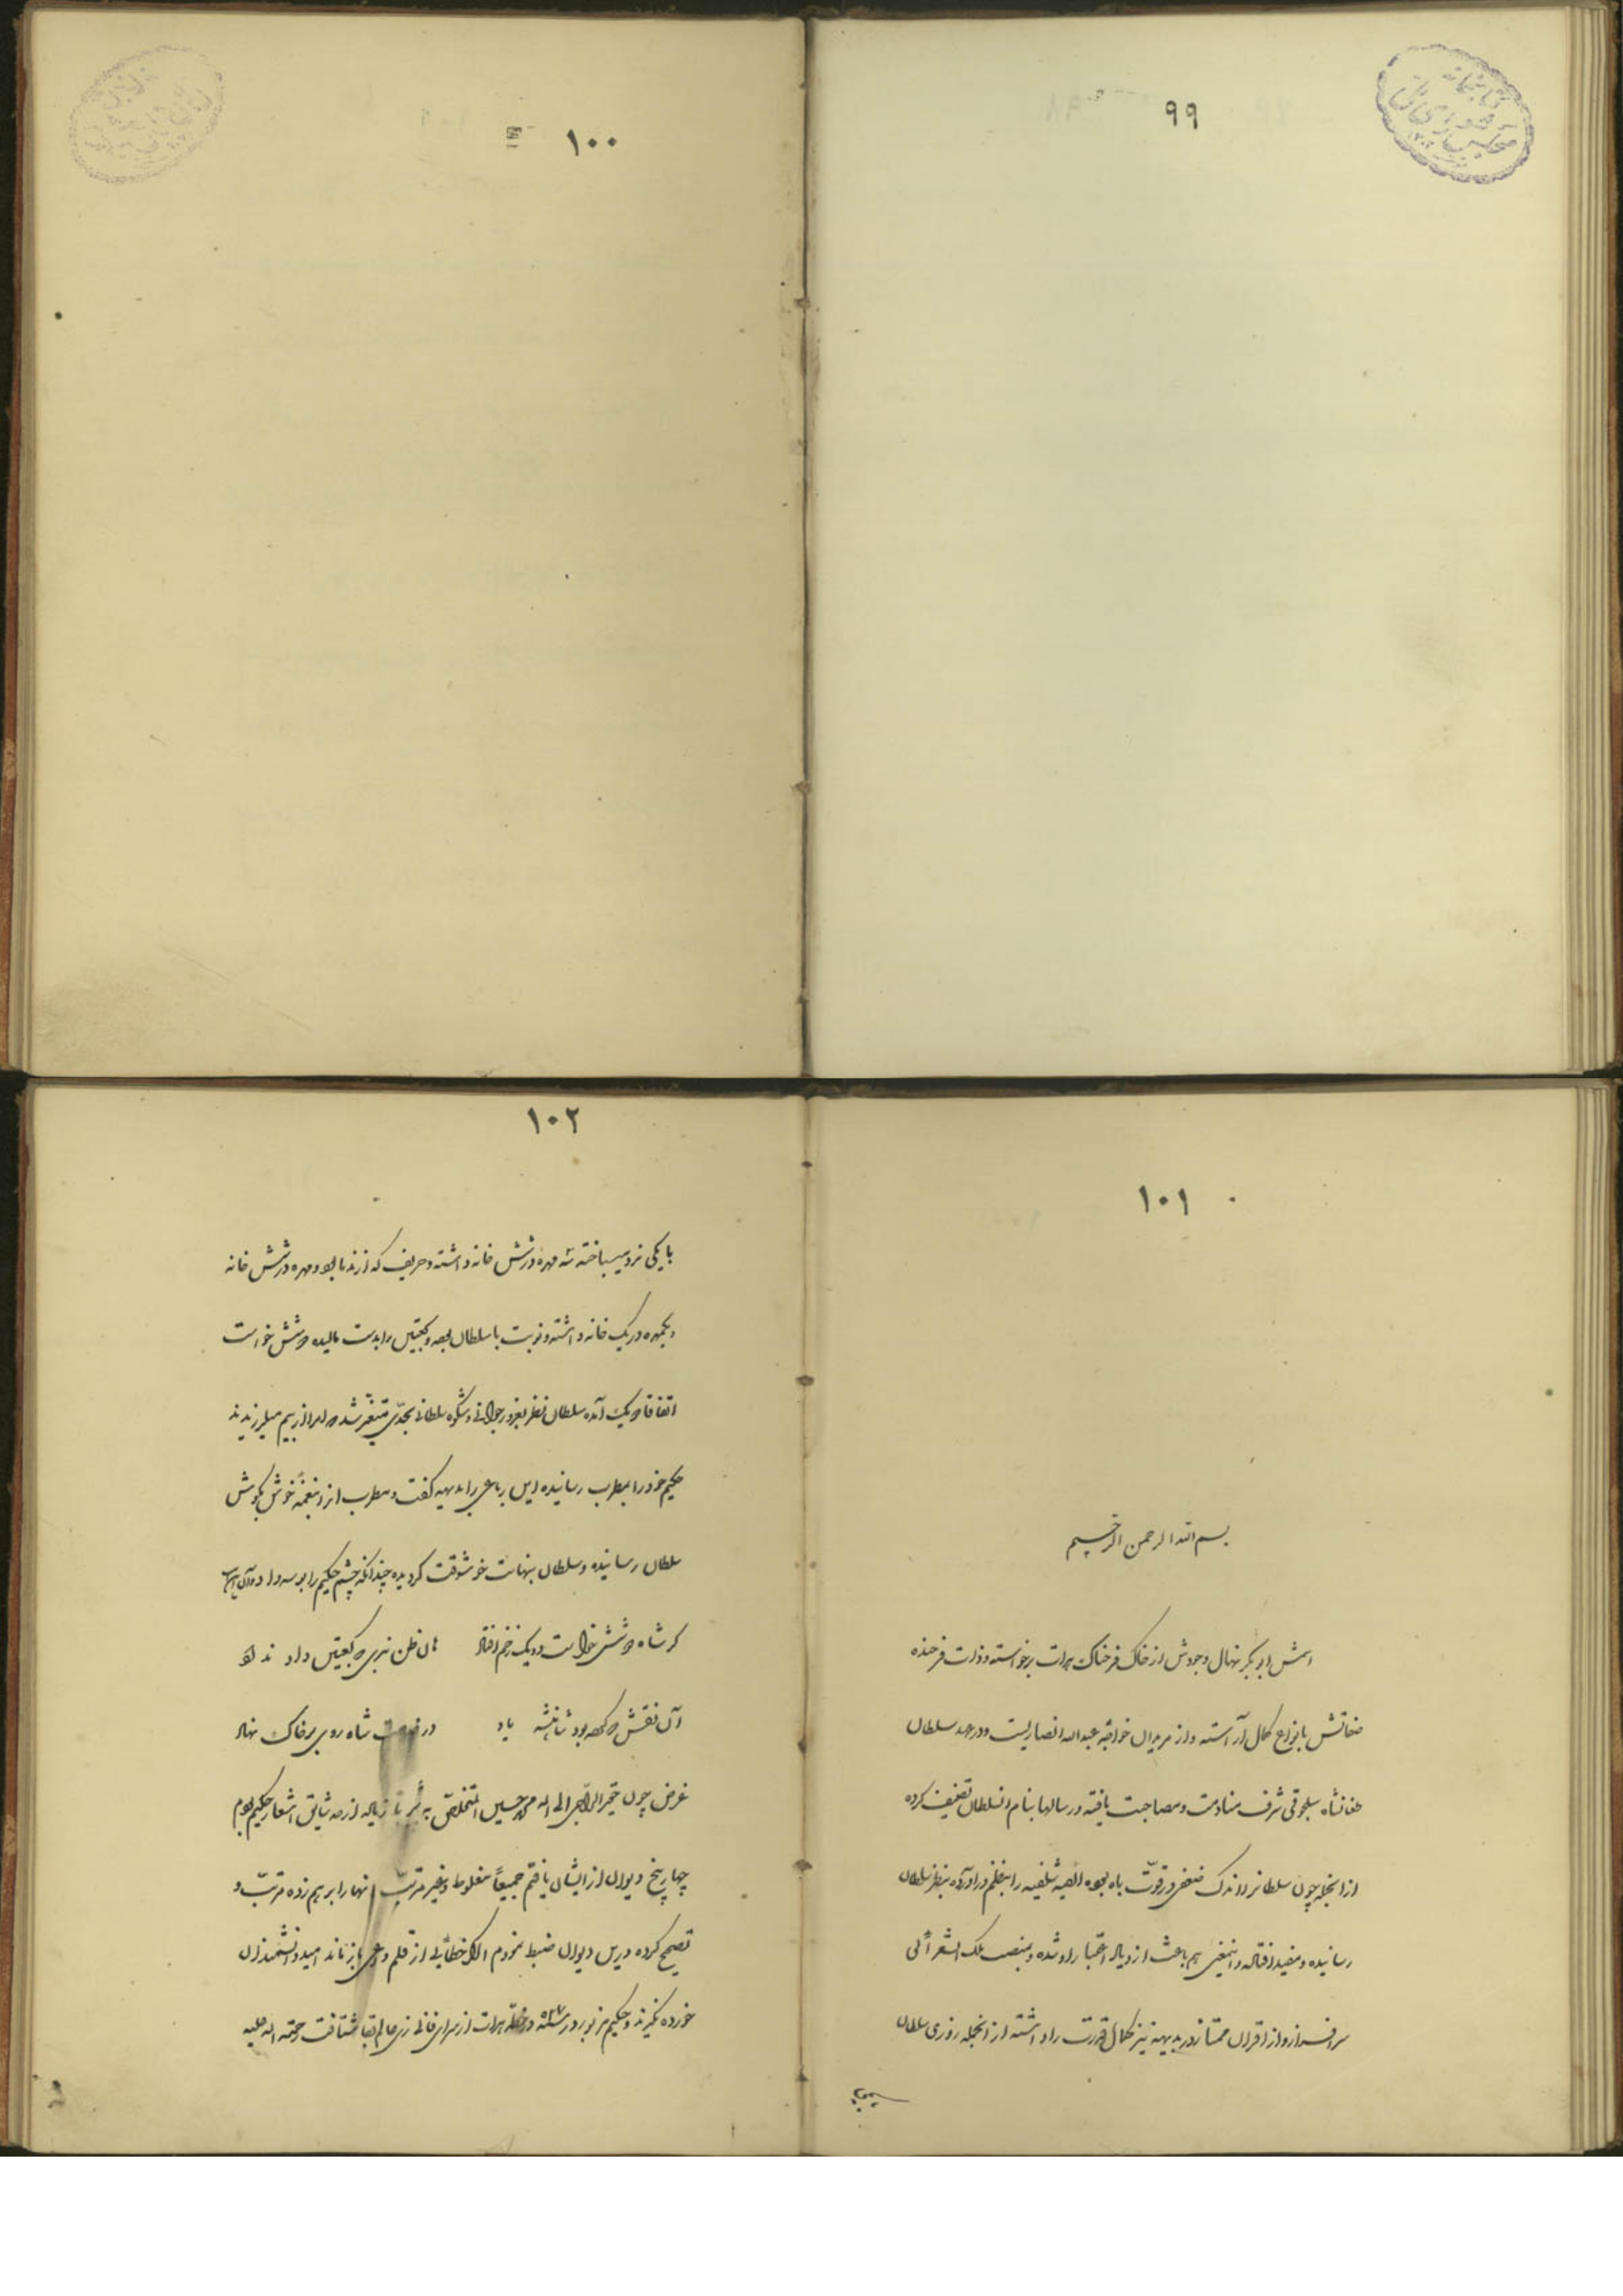 ۹۹
کتابخانه
مجلس شورای ملی
۱۰۰
۱۰۱
بسم الله الرحمن الرحیم
اسمش ابوبکر نهال وجودش از خاک فرخناک هرات برخواسته و ذات فرخنده
صفاتش بانواع کمال آراسته و از مریدان خواجه عبدالله انصاریست و در عهد سلطان
طغانشاه سلجوقی شرف منادمت و مصاحبت یافته و رسالها بنام انسلطان تصنیف کرده
ازانجمله چون سلطانرا اندک ضعفی در قوّت باه بوده الفیه شلفیه را بنظم دراورده بنظر سلطان
رسانیده و مفید افتاده و اینمعنی هم باعث ازدیاد اعتبار او شده و بمنصب ملک الشعرائی
سرافراز و از اقران ممتاز و در بدیهه نیز کمال قدرت را داشته ازانجمله روزی سلطان
۱۰۲
با یکی نرد میباخته سه مهره در شش خانه داشته و حریف که از ندما بود و مهره در شش خانه
و یکمهره در یک خانه داشته و نوبت با سلطان بوده و کعبتین را بدست مالیده دو شش خواست
اتفاقا دو یک آمده سلطان نظر بغرور جوانی و شکوه سلطانی بحدّی متغیّر شده که امرا از بیم میلرزیدند
حکیم خود را بمطرب رسانیده این رباعی را بدیهه گفت و مطرب انرا بنغمهٔ خوش بگوش
سلطان رسانیده و سلطان بنهایت خوشوقت گردیده چندانکه چشم حکیم را بوسه داد و آن این است
گر شاه دو شش خواست دو یک زخم افتاد هان ظن نبری که کعبتین داد نداد
آن نقش که کرده بود شاهنشه یاد در خدمت شاه روی بر خاک نهاد
غرض چون حقیر الراجی الی الله محمد حسین المتخلّص به زیاده از حد شایق اشعار حکیم بودم
چهار پنج دیوان از ایشان یافتم جمیعاً مغلوط و غیر مرتّب اینها را بر هم زده مرتّب و
تصحیح کرده درین دیوان ضبط نمودم اگر خطائی از قلم داعی باز ماند امید دانشمندان
خورده نگیرند و حکیم مزبور در سنه ۵۲۷ در خطّه هرات از سرای فانی زی عالم بقا شتافت رحمة الله علیه